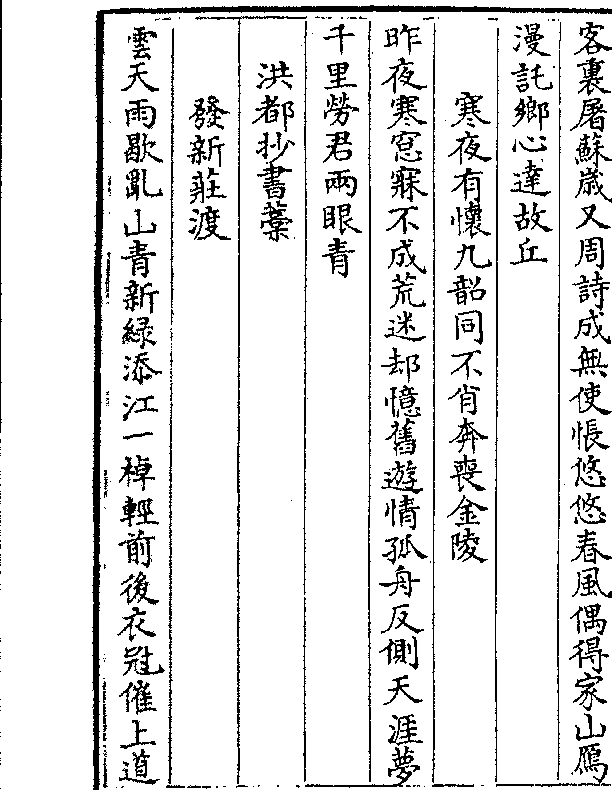 客裏屠蘇歳又周詩成無使悵悠悠春風偶得家山鴈
漫託鄉心達故丘
寒夜有懷九韶同不肖奔喪金陵
昨夜寒窓寐不成荒迷却憶舊遊情孤舟反側天涯夢
千里勞君兩眼青
洪都抄書藁
發新莊渡
雲天雨歇亂山青新緑添江一棹輕前後衣冠催上道